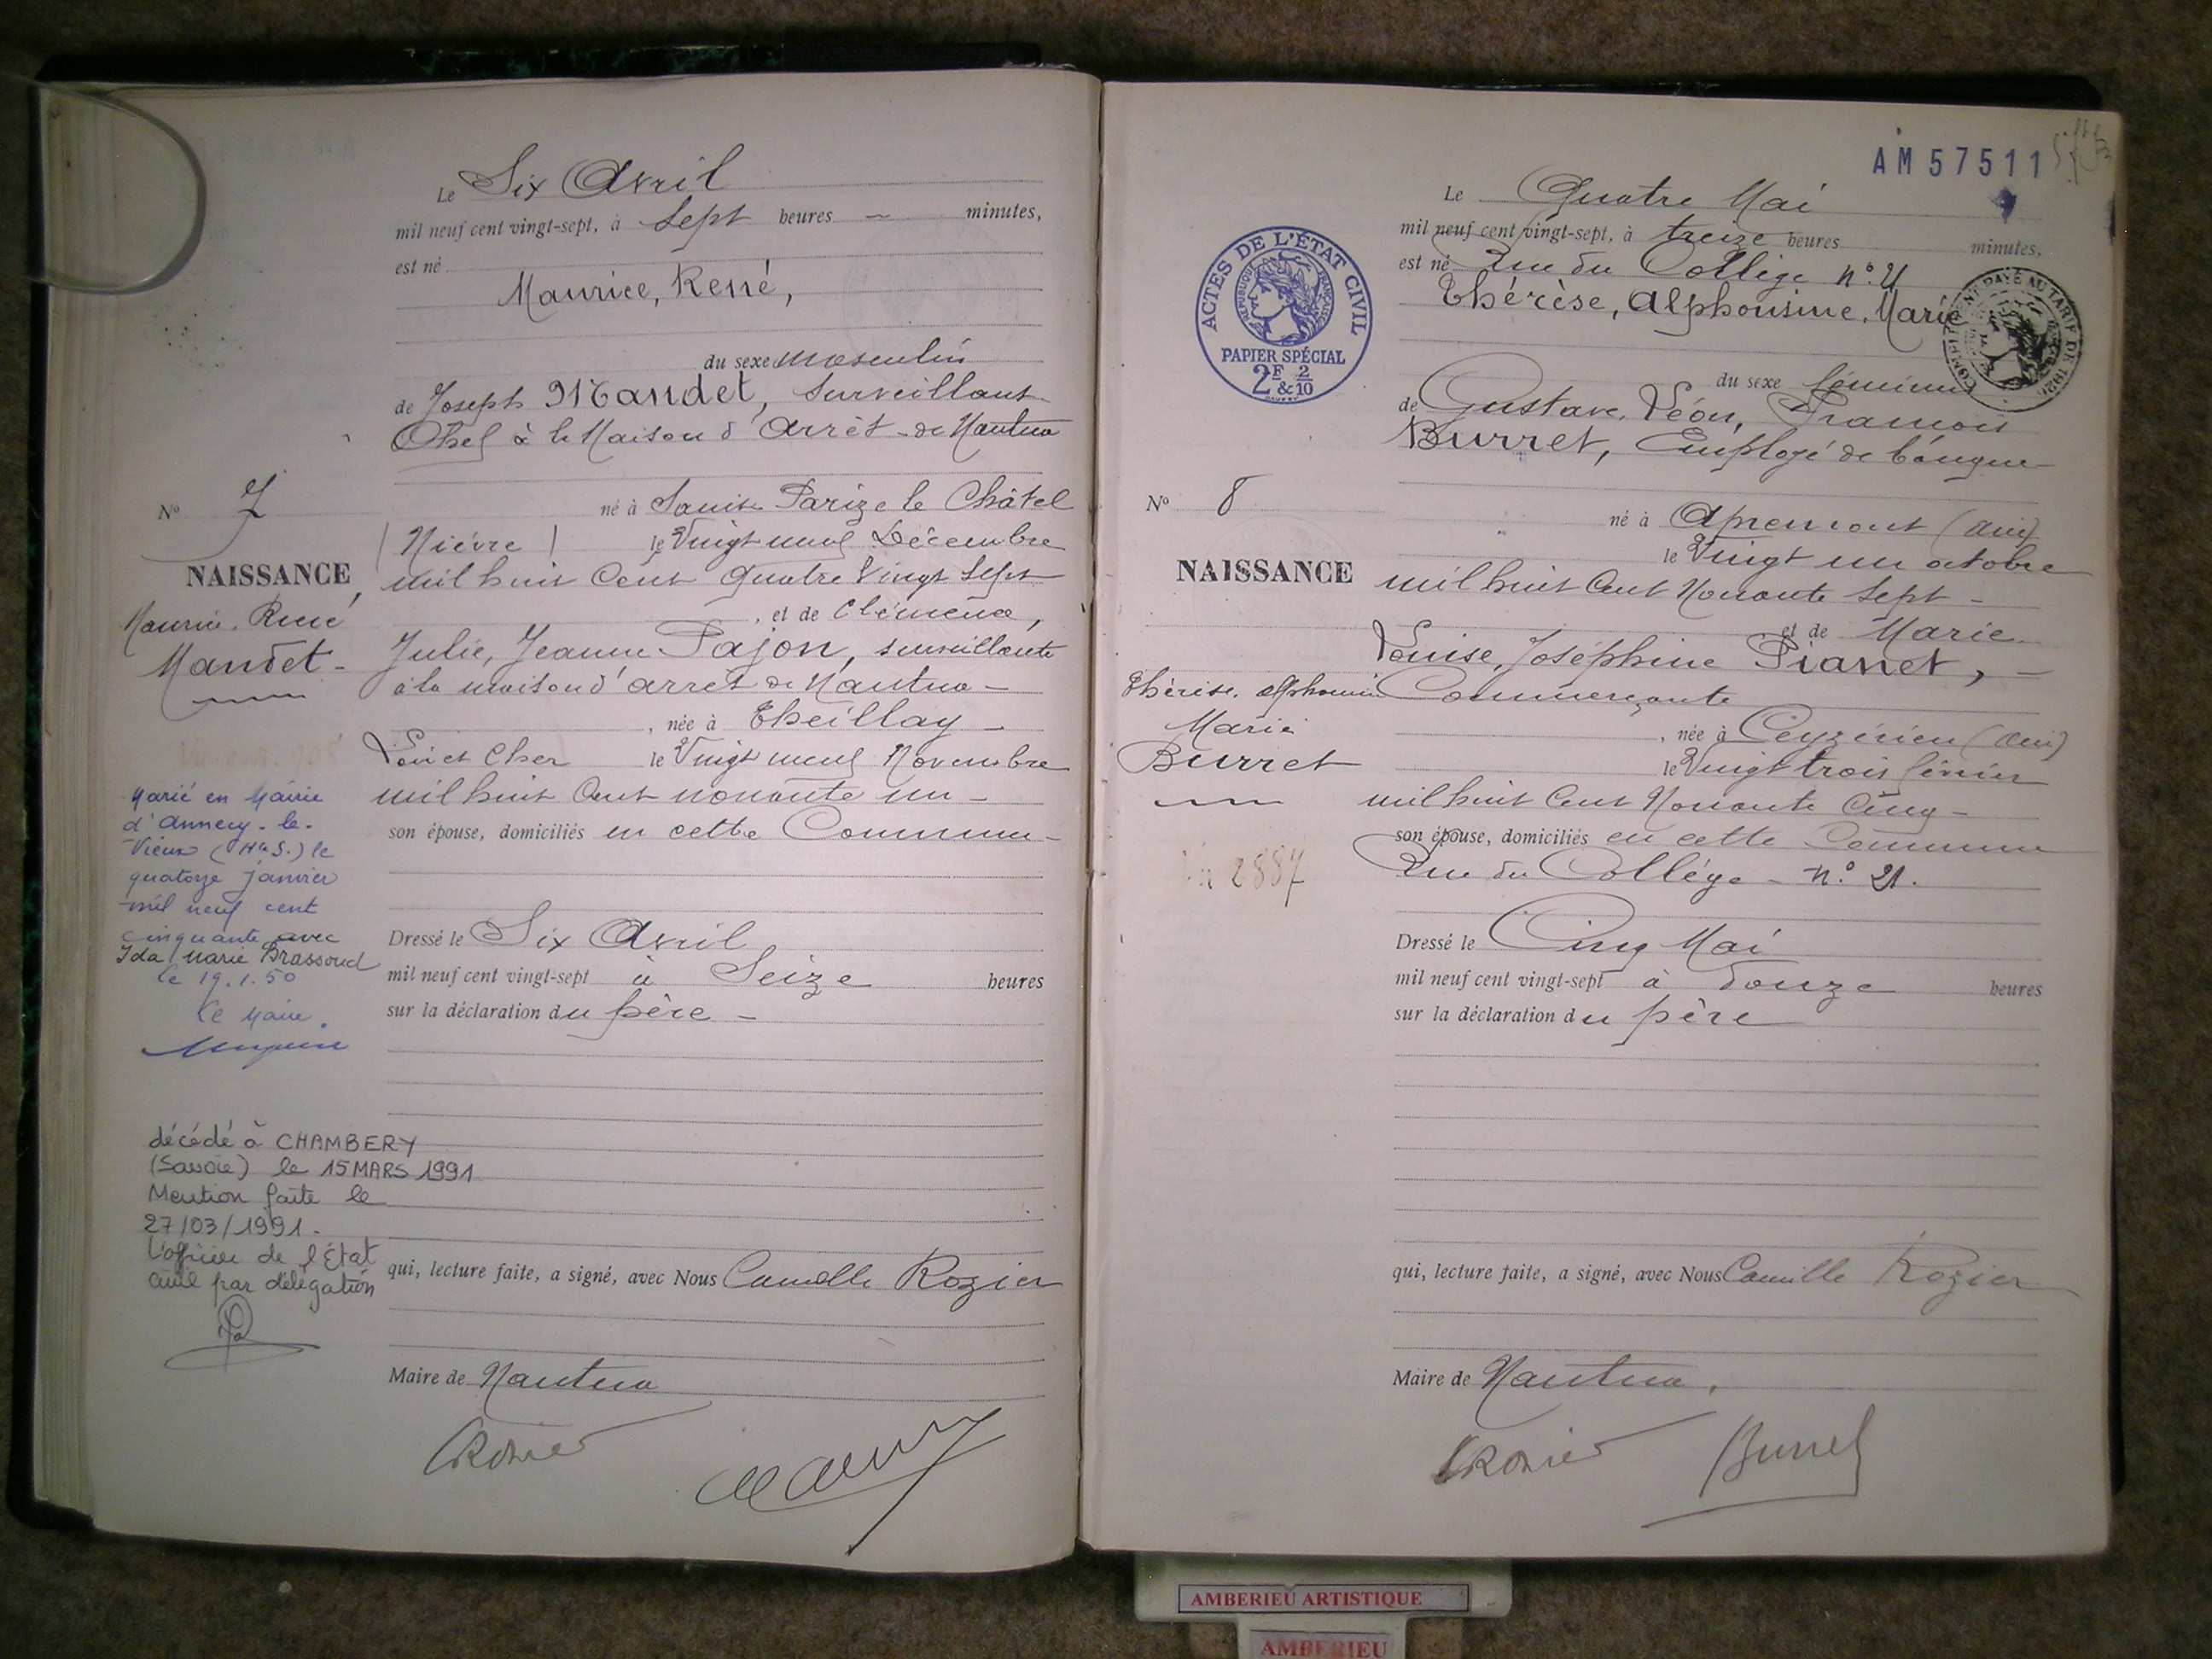 Le Six Avril
mil neuf cent vingt-sept, à Sept heures ~ minutes,
est né
Maurice, René,
du sexe masculin
de Joseph Mandet, Surveillant
Chef à la Maison d'Arrêt de Nantua
N° 7
NAISSANCE
Maurice, René
Mandet
né à Saint Parize le Châtel
(Nièvre) le Vingt neuf Décembre
mil huit Cent quatre Vingt Sept
, et de Clémence,
Julie, Jeanne Pajon, surveillante
à la maison d'arret de Nantua
, née à Theillay
Loir et Cher le Vingt neuf Novembre
mil huit Cent nonante un
son épouse, domiciliés en cette Commune
Dressé le Six Avril
mil neuf cent vingt-sept à Seize heures
sur la déclaration du père
Marié en Mairie
d'Annecy-le-
Vieux (Hte S.) le
quatorze janvier
mil neuf cent
cinquante avec
Ida Marie Brassoud
le 19.1.50
Le Maire.
décédé à CHAMBERY
(Savoie) le 15 MARS 1991
Mention faite le
27/03/1991.
L'officier de l'État
Civil par délégation
qui, lecture faite, a signé, avec Nous Camille Rozier
Maire de Nantua
CRozier
AM 57511
Le Quatre Mai
mil neuf cent vingt-sept, à treize heures minutes,
est né Rue du Collège n° 21
Thérèse, Alphonsine, Marie
ACTES DE L'ÉTAT CIVIL
RÉPUBLIQUE FRANÇAISE
PAPIER SPÉCIAL
2F & 2/10
du sexe féminin
de Gustave, Léon, François
Burret, Employé de banque
N° 8
NAISSANCE
Thérèse, Alphonsine
Marie
Burret
2887
né à Apremont (Ain)
le Vingt un octobre
mil huit Cent Nonante Sept
et de Marie
Louise, Joséphine Pianet,
Commerçante
, née à Ceyzérieu (Ain)
le Vingt trois février
mil huit Cent Nonante Cinq
son épouse, domiciliés en cette Commune
Rue du Collège n° 21.
Dressé le Cinq Mai
mil neuf cent vingt-sept à douze heures
sur la déclaration du père
qui, lecture faite, a signé, avec Nous Camille Rozier
Maire de Nantua.
CRozier Burret
AMBERIEU ARTISTIQUE
AMBERIEU